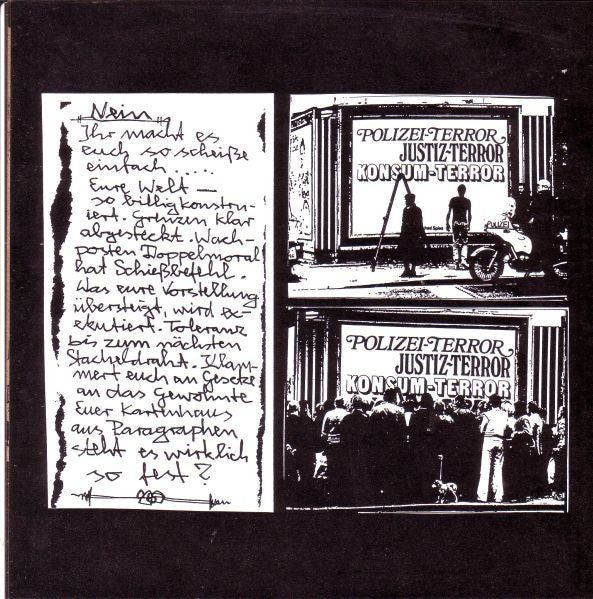 „Nein"
Ihr macht es
euch so scheiße
einfach.....
Eure Welt —
so billig konstru-
iert. Grenzen klar
abgesteckt. Wach-
posten Doppelmoral
hat Schießbefehl.
Was eure Vorstellung
übersteigt, wird ex-
ekutiert. Toleranz
bis zum nächsten
Stacheldraht. Klam-
mert euch an Gesetze
an das Gewohnte
Euer Kartenhaus
aus Paragraphen
steht es wirklich
so fest?
POLIZEI-TERROR
JUSTIZ-TERROR
KONSUM-TERROR
POLIZEI
POLIZEI-TERROR
JUSTIZ-TERROR
KONSUM-TERROR